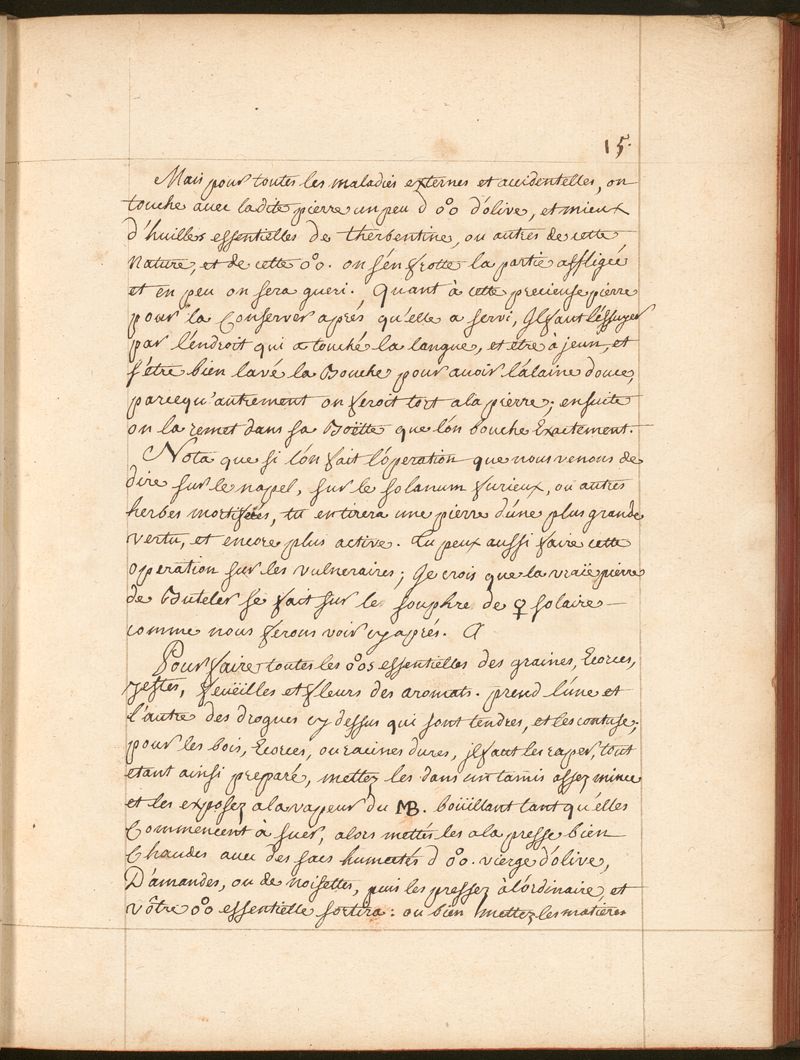 15.
Mais pour toutes les maladies externes et accidentelles, on
touche avec ladite pierre un peu d o°o d'olive, et mieux
d'huilles essentielles de therbentine, ou autres de cette
Nature, et de cette o°o. on s'én frotte la partie affligeé
et en peu on sera gueri. Quant à cette precieuse pierre
pour la Conserver aprés qu'elle a servi, Il faut l'éssuyer
par l'éndroit qui a touché la langue, et étre à jeun, et
s'étre bien lavé la Bouche pour avoir l'álaine douce,
parcequ'autrement on feroit tort a la pierre; ensuite
on la remet dans sa Boëtte que l'ón bouche Exactement.
Nota que si l'ón fait l'óperation que nous venons de
dire sur le napel, sur le solanum furieux, ou autres
herbes mortifeés, tu en tirera une pierre d'úne plus grande
vertu, et encore plus active. Tu peux aussi faire cette
operation sur les vulneraires; Je crois que la vraïe pierre
de Buteler se fait sur le souphre de ♀ solaire
comme nous ferons voir cy aprés.
Pour faire toutes les o°os essentielles des graines, Ecorces,
Zestes, feuëilles et fleurs des aromats. prend l'úne et
l'autre des drogues cy dessus qui sont tendres, et les contuse;
pour les bois, Ecorces, ou racines dures, il faut les raper, tout
etant ainsi preparé, mettez les dans un tamis assez mince
et les exposez a la vapeur du MB. boüillant tant qu'élles
Commencent à suer, alors mettés les a la presse bien
Chaudes avec des sacs humectés d o°o. vierge d'olive,
D'amandes, ou de noisettes, puis les pressez à l'órdinaire, et
vôtre o°o essentielle sortira: ou bien mettez les matieres